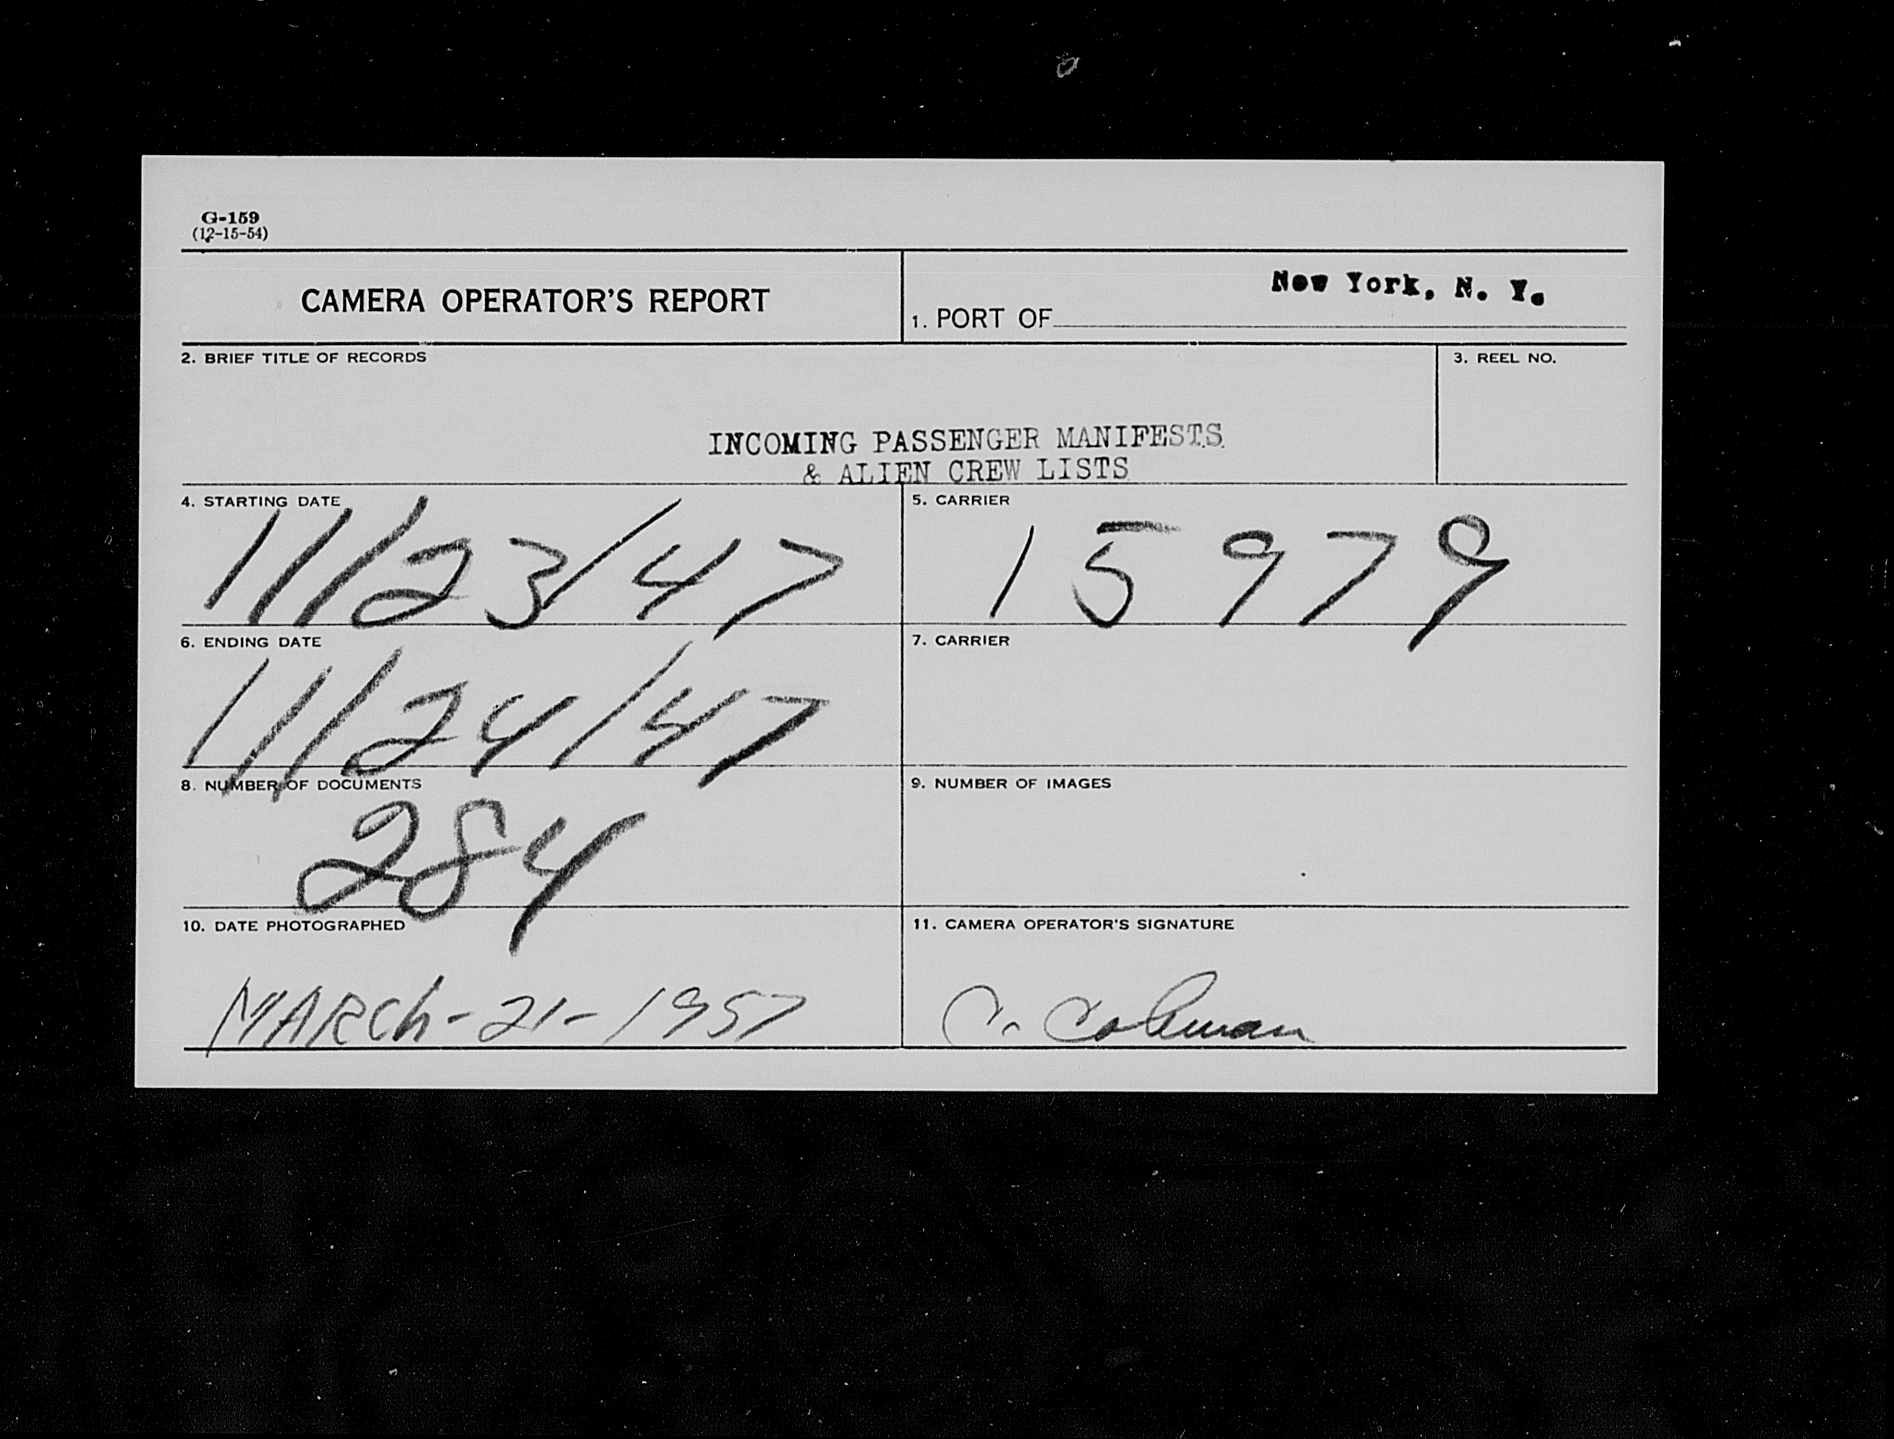 G-159
(12-15-54)
CAMERA OPERATOR'S REPORT
1. PORT OF New York, N. Y.
2. BRIEF TITLE OF RECORDS
INCOMING PASSENGER MANIFESTS
& ALIEN CREW LISTS
3. REEL NO.
4. STARTING DATE
11/23/47
5. CARRIER
15979
6. ENDING DATE
11/24/47
7. CARRIER
8. NUMBER OF DOCUMENTS
284
9. NUMBER OF IMAGES
10. DATE PHOTOGRAPHED
MARCh-21-1957
11. CAMERA OPERATOR'S SIGNATURE
C. Coleman